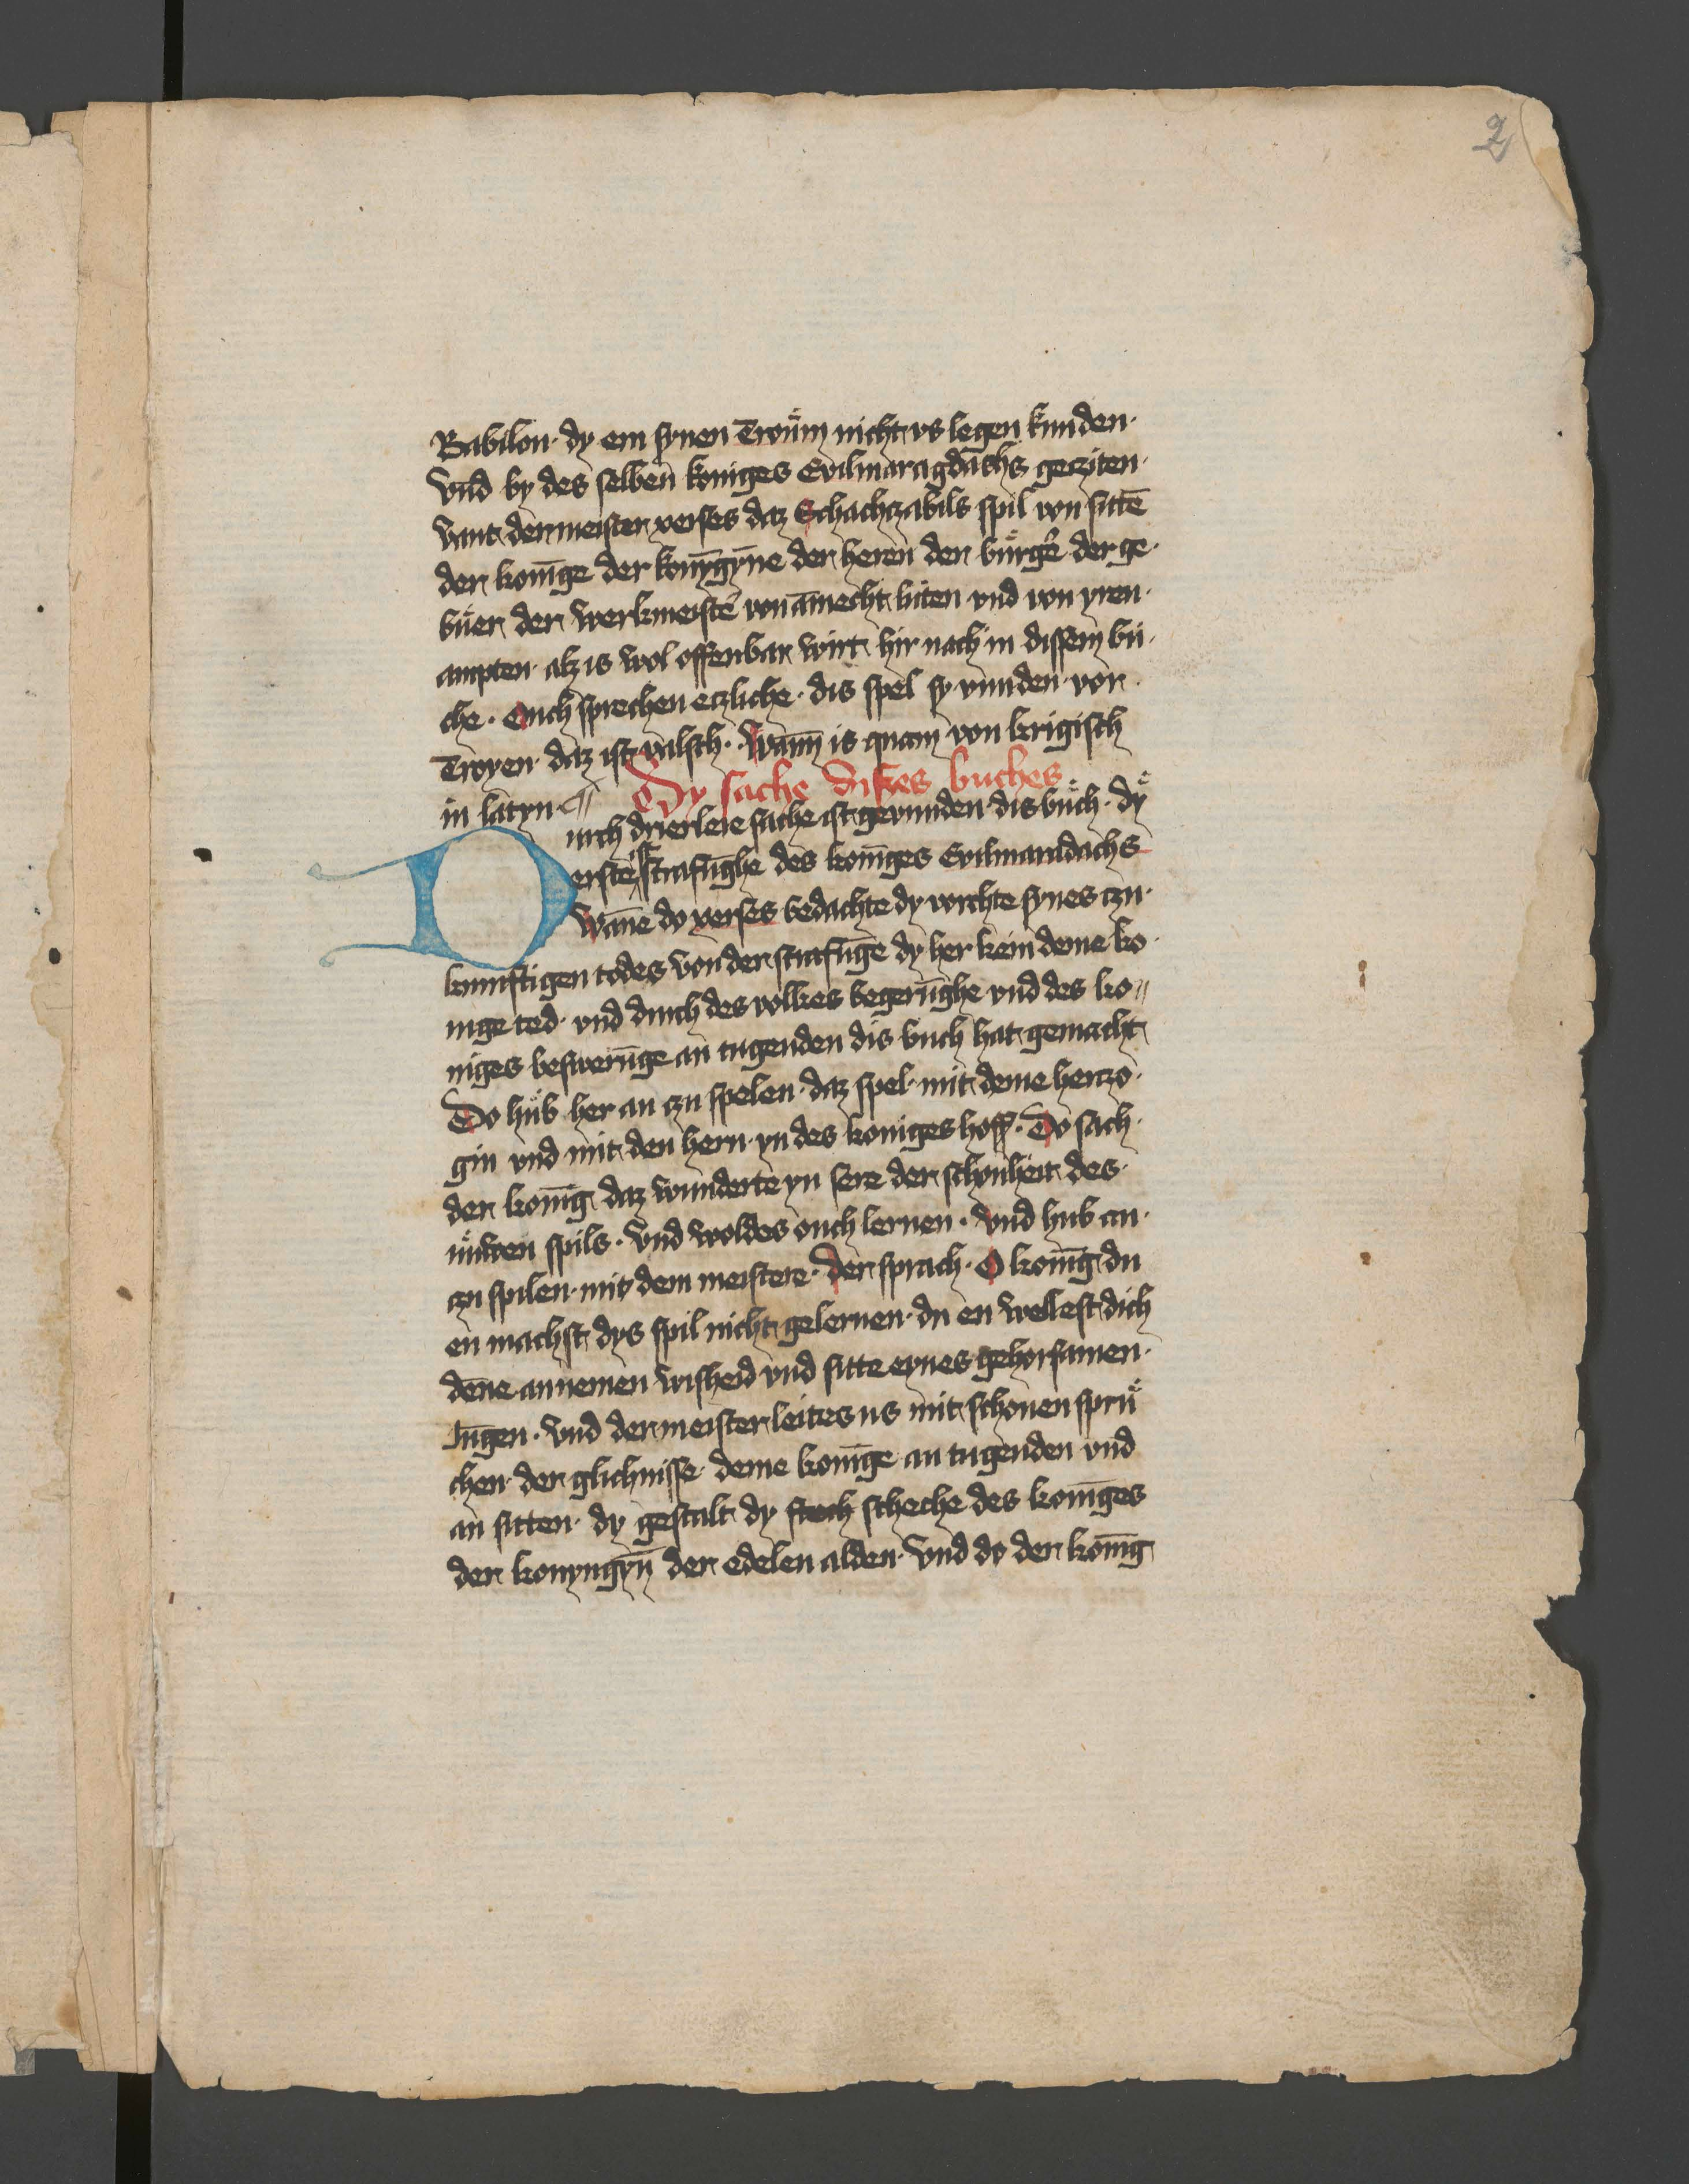 2
Babilon· dy em synen Troům nicht vs legen kunden·
vnd by des selben koniges Evilmaragdachs gecziten·
vant der meister xerses daz Schachczabils spil von sittē
der konīge der konȳgȳne der heren der bůrgē der ge·
bůer der werkmeistē von āmecht luten vnd von yren·
ampten· alz is wol offenbar wirt hir nach in dissem bu·
che· Ouch sprechen eczliche· dis spel sy vunden vor
Troyen· daz ist valsch· Wann is quam von krigisch
in latyn· ¶ Dy sache disses buches
Durch drierleie sache ist gevunden dis bůch· dẙ
erste ist strafūghe des konīges Evilmardachs
Wāne do xerses bedachte dy vorchte synes czu·
kunftigen todes von der strafūge dy her kein deme ko·
nige ted· vnd durch des volkes begerūghe vnd des ko
niges beswerūge an tugenden dis buch hat gemacht
Do hůb her an czu spelen· daz spel· mit deme herczo·
gin vnd mit den hern· yn des koniges hoff· Do sach·
der konīg daz wunderte yn sere der schonheit des·
nůwen spils· vnd woldes ouch lernen· vnd hub an·
czu spilen· mit dem meistere· der sprach· O konīg du
en machst dys spil nicht gelernen· du en wellest dich
dēne annemen wisheid vnd sitte eynes gehorsamen·
Iūgen· vnd der meister leites us mit schonen sprů
chen· der glichnisse· deme konīge an tugenden vnd
an sitten· dy gestalt dy stoch scheche des konīges
der konyngȳn der edelen alden· vnd do der konīg